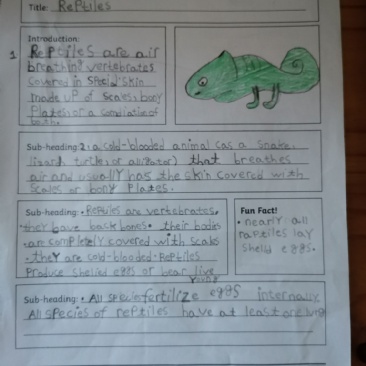 Title: Reptiles
Introduction:
1 Reptiles are air
breathing vertebrates
covered in special skin
made up of scales, bony
Plates, or a combination of
both.
Sub-heading 2: a cold-blooded animal (as a snake,
lizard, turtle, or alligator) that breathes
air and usually has the skin covered with
Scales or bony plates.
Sub-heading: • Reptiles are vertebrates,
• they have backbones • their bodies
• are completely covered with scales
• they are cold-blooded • Reptiles
Produce shelled eggs or bear live
young
Fun Fact!
• nearly all
raptiles lay
shelld eggs.
Sub-heading: • All species fertilize eggs internally
All species of reptiles have at least one lung